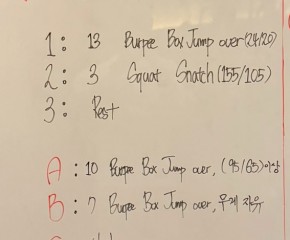 1: 13 Burpee Box Jump over (24/20)
2: 3 Squat Snatch (155/105)
3: Rest
A: 10 Burpee Box Jump over, (95/65)이상
B: 7 Burpee Box Jump over, 무게 자유